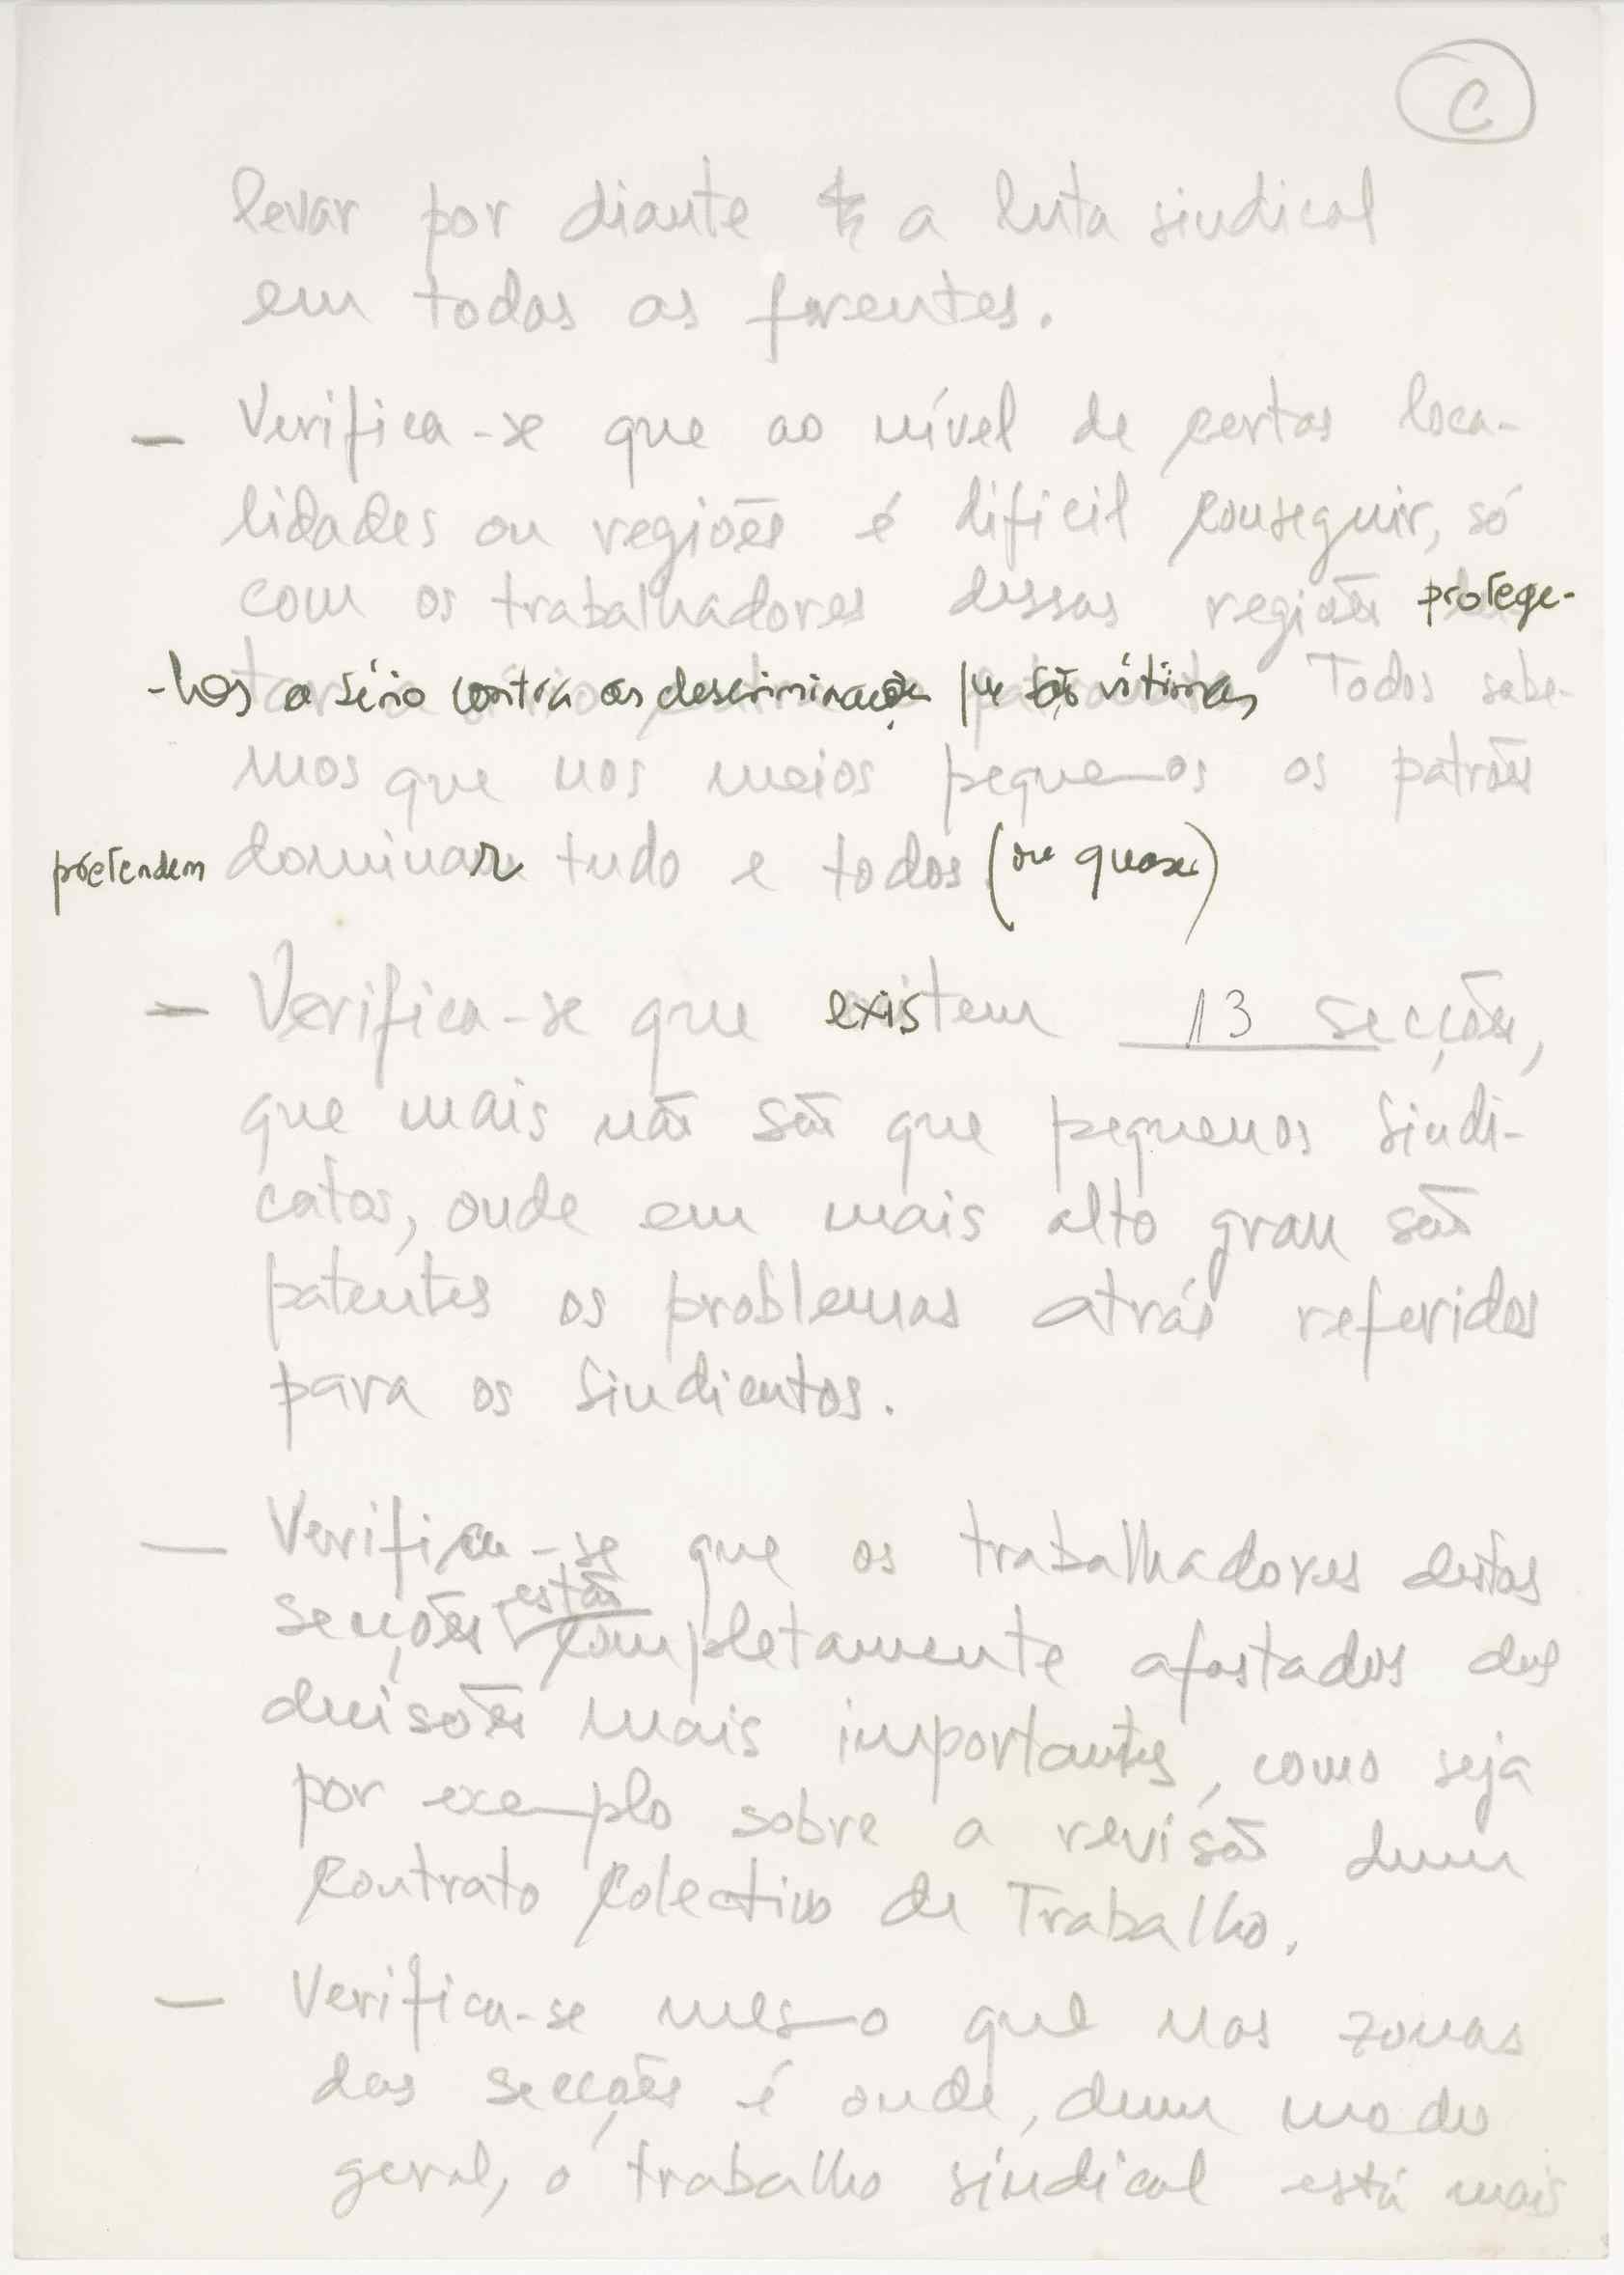 C
levar por diante a luta sindical
em todas as frentes.
— Verifica-se que ao nível de certas loca-
lidades ou regiões é dificil conseguir, só
com os trabalhadores dessas regiões protege-
-los a sério contra as descriminações que são vítimas Todos sabe-
mos que nos meios pequenos os patrões
pretendem dominar tudo e todos (ou quase)
— Verifica-se que existem 13 secções,
que mais não são que pequenos sindi-
catos, onde em mais alto grau são
patentes os problemas atrás referidos
para os sindicatos.
— Verifica-se que os trabalhadores destas
secções estão completamente afastados das
decisões mais importantes, como seja
por exemplo sobre a revisão dum
Contrato Colectivo de Trabalho.
— Verifica-se mesmo que nas zonas
das secções é onde, dum modo
geral, o trabalho sindical está mais